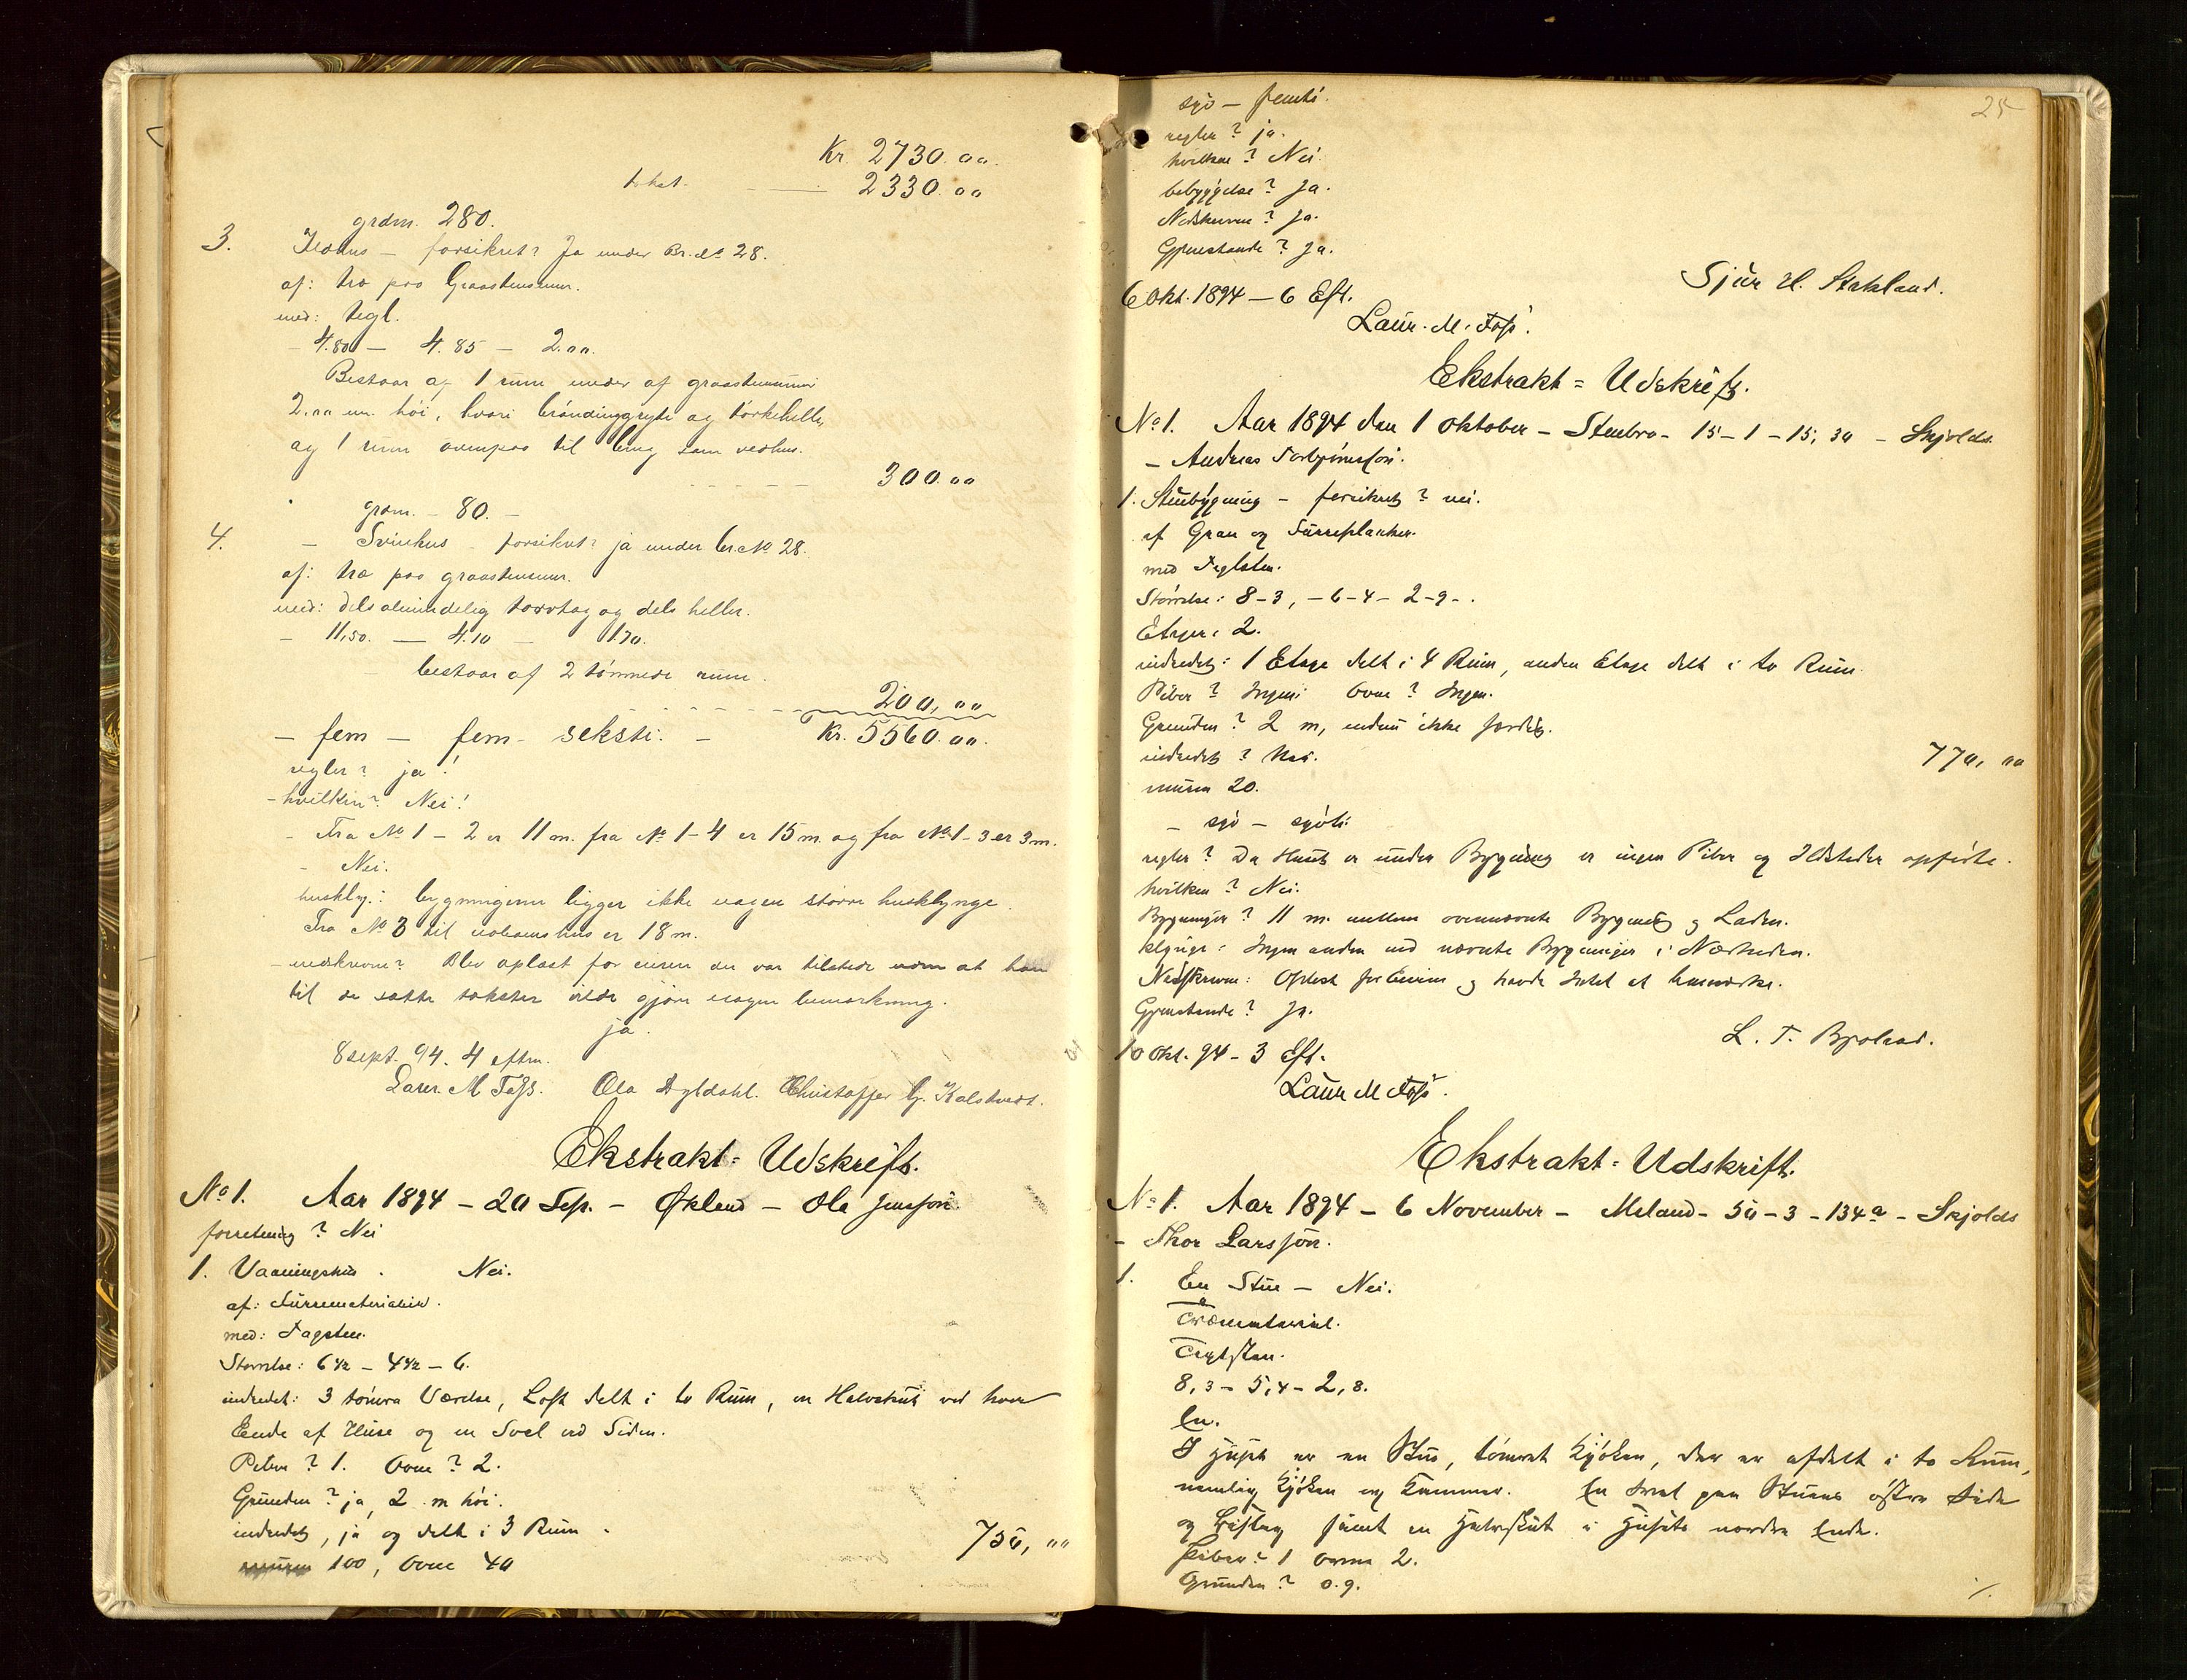 Kr. 2730.00
takst. — 2330.00
grdm. 280.
3. Ildhus – forsikret? Ja under Br. No 28.
af: træ paa Graastensmur.
med: tegl.
– 4.80 – 4.85 – 2.00.
Bestaar af 1 rum under af graastensmur
2.00 m. høi, hvori bryndinggryte og tørkehelle,
og 1 rum ovenpaa til brug som vedhus.
300.00
grdm. – 80. –
4. – Svinhus – forsikret? ja under br. No 28.
af: træ paa graastensmur.
med: dels almindelig torvtag og dels heller.
– 11,50. — 4.10 – 1.70.
bestaar af 2 tømrede rum.
200,00
– fem – fem – seksti. – Kr. 5560.00.
regler? ja!
– hvilken? Nei!
– Fra No 1 – 2 er 11 m. fra No 1 – 4 er 15 m. og fra No 1 – 3 er 3 m.
– Nei.
huskly.: bygningerne ligger ikke nogen større husklynge.
Fra No 3 til naboens hus er 18 m.
– nedskrevne? Blev oplæst for eieren der var tilstede uden at han
til de satte takster vilde gjøre nogen bemærkning.
ja.
8 sept. 94. 4 eftm.
Laur. M Foss. Ola Dyldahl. Christoffer G. Kalstvedt.
Ekstrakt = Udskrift.
No 1. Aar 1894 – 20 Sep. – Økland – Ola Jensson.
forretning? Nei
1. Vaaningshus. Nei.
af: Furrematerialier.
med: Tagsten.
Størrelse: 6 1/2 – 4 1/2 – 6.
indredet: 3 tømra Værelse, Loft delt i to Rum, en Halvskut ved hver
Ende af Huse og en Sval ved Siden.
Piber? 1. Ovne? 2.
Grunden? ja, 2 m høi.
indredet, ja og delt i 3 Rum.
750,00
muren 100, Ovne 40
25
syv – femti.
regler? ja.
hvilken? Nei.
bebyggelse? Ja.
Nedskrevne? Ja.
Gjenstande? Ja.
Sjur H. Stakland.
6 Okt. 1894 – 6 Eft.
Laur. M. Foss.
Ekstrakt = Udskrift.
No 1. Aar 1894 den 1 Oktober – Stenbro – 15 – 1 – 15,30 – Skjolds
– Andreas Torbjørnsson.
1. Stuebygning – forsikret? nei.
af Gran og Furreplanker.
med Teglsten.
Størrelse: 8 – 3, – 6 – 4 – 2 – 9 – .
Etager: 2.
indredet: 1 Etage delt i 4 Rum, anden Etage delt i to Rum.
Piber? Ingen: Ovne? Ingen.
Grunden? 2 m, endnu ikke færdig.
indredet? Nei.
770,00
muren 20.
– syv – sytti
regler? Da Huset er under Bygning er ingen Piber og Ildsteder opførte.
hvilken? Nei.
Bygninger? 11 m. mellem ovennævnte Bygning og Laden.
klynge: Ingen anden end nævnte Bygninger i Nærheden.
Nedskrevne: Oplæst for Eieren og havde Intet at bemærke.
Gjenstande? Ja.
L. T. Bjoland.
10 Okt. 94 – 3 Eft.
Laur M Foss.
Ekstrakt = Udskrift.
No 1. Aar 1894 – 6 November – Meland – 50 – 3 – 134 a – Skjolds
– Thor Larsson.
1. En Stue – Nei.
Træmaterial.
Teglsten.
8,3 – 5,4 – 2,8.
En.
I Huset er en Stue, tømret Kjøken, der er afdelt i to Rum,
nemlig Kjøken og Kammer. En Sval paa Stuens østre Side
og Bislag samt en Halvskut i Husets nordre Ende.
Piber? 1 Ovne 2.
Grunden? 0.9.